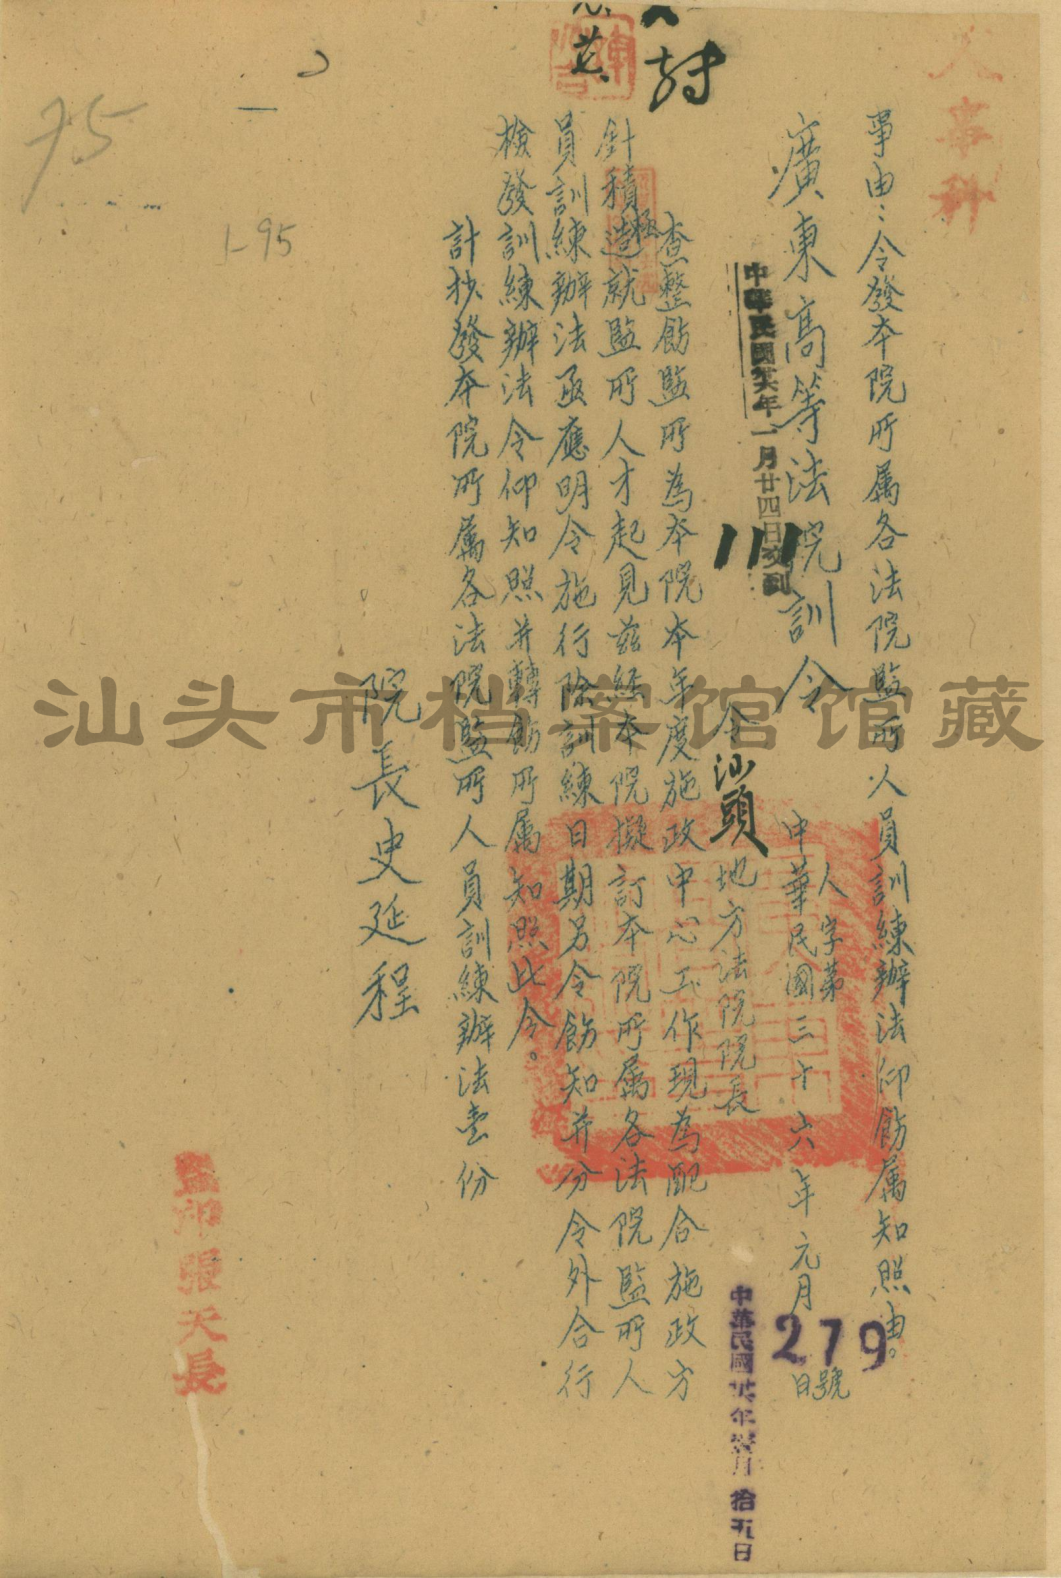 人事科
事由：令發本院所属各法院監所人員訓練辦法仰飭属知照由。
廣東高等法院訓令
人字第279號
中華民國三十六年元月 日
中華民國卅六年一月廿四日交到
中華民國卅六年壹月拾五日
令汕頭地方法院院長
查整飭監所為本院本年度施政中心工作現為配合施政方
針積極造就監所人才起見茲經本院擬訂本院所属各法院監所人
員訓練辦法亟應明令施行除訓練日期另令飭知并分令外合行
檢發訓練辦法令仰知照并轉飭所属知照此令。
計抄發本院所属各法院監所人員訓練辦法壹份
院長史延程
監印張天長
1-95
汕头市档案馆馆藏